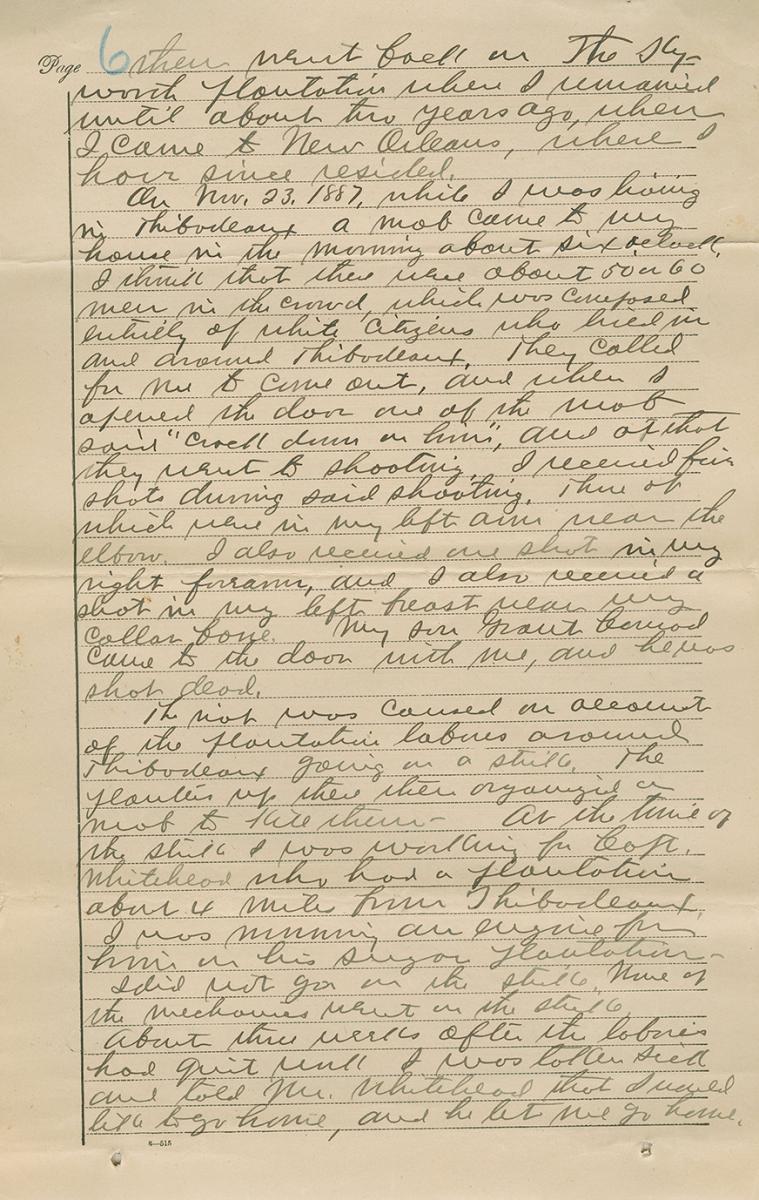 Page 6 then went back on The Sky-
worth plantation where I remained
until about two years ago, when
I came to New Orleans, where I
have since resided.
On Nov. 23. 1887, while I was living
in Thibodeaux a mob came to my
house in the morning about six oclock.
I think that there were about 50 or 60
men in the crowd, which was composed
entirely of white citizens who lived in
and around Thibodeaux. They called
for me to come out, and when I
opened the door one of the mob
said "Crack down on him", and at that
they went to shooting. I received five
shots during said shooting. Three of
which were in my left arm near the
elbow. I also received one shot in my
right forearm, and I also received a
shot in my left breast near my
collar bone. My son Grant Conrad
came to the door with me, and he was
shot dead.
The riot was caused on account
of the plantation labores around
Thibodeaux going on a strike. The
planters up there then organized a
mob to kill them- At the time of
the strike I was working for Capt.
Whitehead who had a plantation
about 4 miles from Thibodeaux.
I was running an engine for
him on his sugar plantation-
I did not go on the strike. None of
the mechanics went on the strike
About three weeks after the labores
had quit work I was taken sick
and told Mr. Whitehead that I would
like to go home, and he let me go home.
6-515